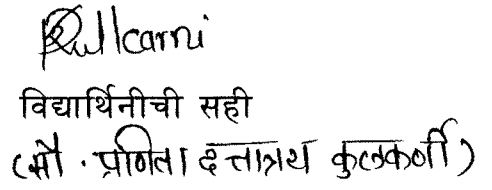 Kulkarni
विद्यार्थिनीची सही
(सौ. प्रणिता दत्तात्रय कुलकर्णी)